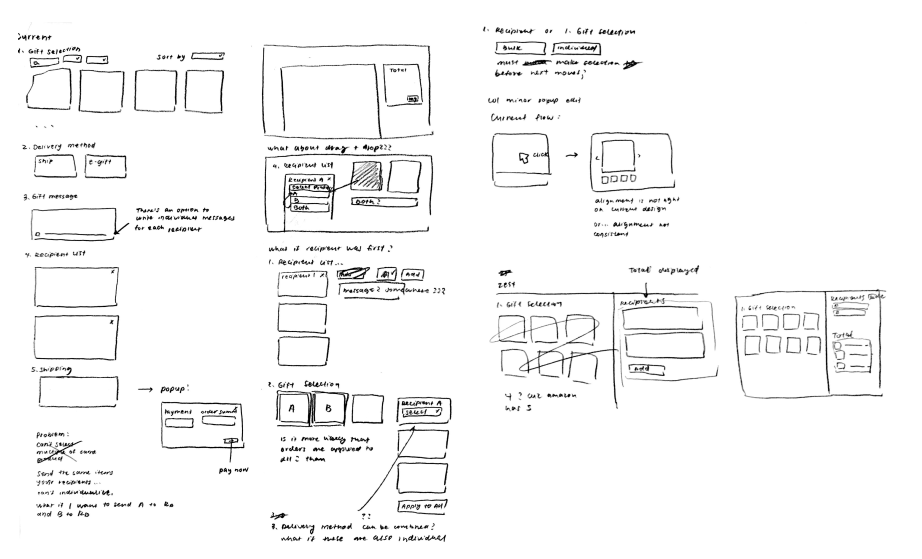 Current
1. Gift Selection
Sort by
...
2. Delivery method
Ship
E-gift
3. Gift message
There's an option to
write individual messages
for each recipient
4. Recipient List
x
x
5. Shipping
→ popup:
Payment
order summ
pay now
Problem:
Can't select
multiple of same
product
Send the same items
your recipients ...
can't individualize.
what if I want to send A to Ra
and B to Rb
Total
what about drag + drop???
4. Recipient List
Recipient A x
A
B
Both
Both?
what if recipient was first?
1. Recipient List...
recipient 1 x
Add
message? somewhere???
2. Gift Selection
A
B
Recipient A
Select
is it more likely that
orders are applied to
all? than
Apply to All
??
3. Delivery method can be combined?
what if these are also individual
1. Recipient or 1. Gift Selection
Bulk
individual
must make selection
before next moves;
w/ minor popup edit
Current flow:
click
→
<
>
alignment is not right
on current design
or... alignment not
consistent
Total displayed
zest
1. Gift Selection
Recipients
Add
4? cuz amazon
has 5
1. Gift Selection
Recipients
Total